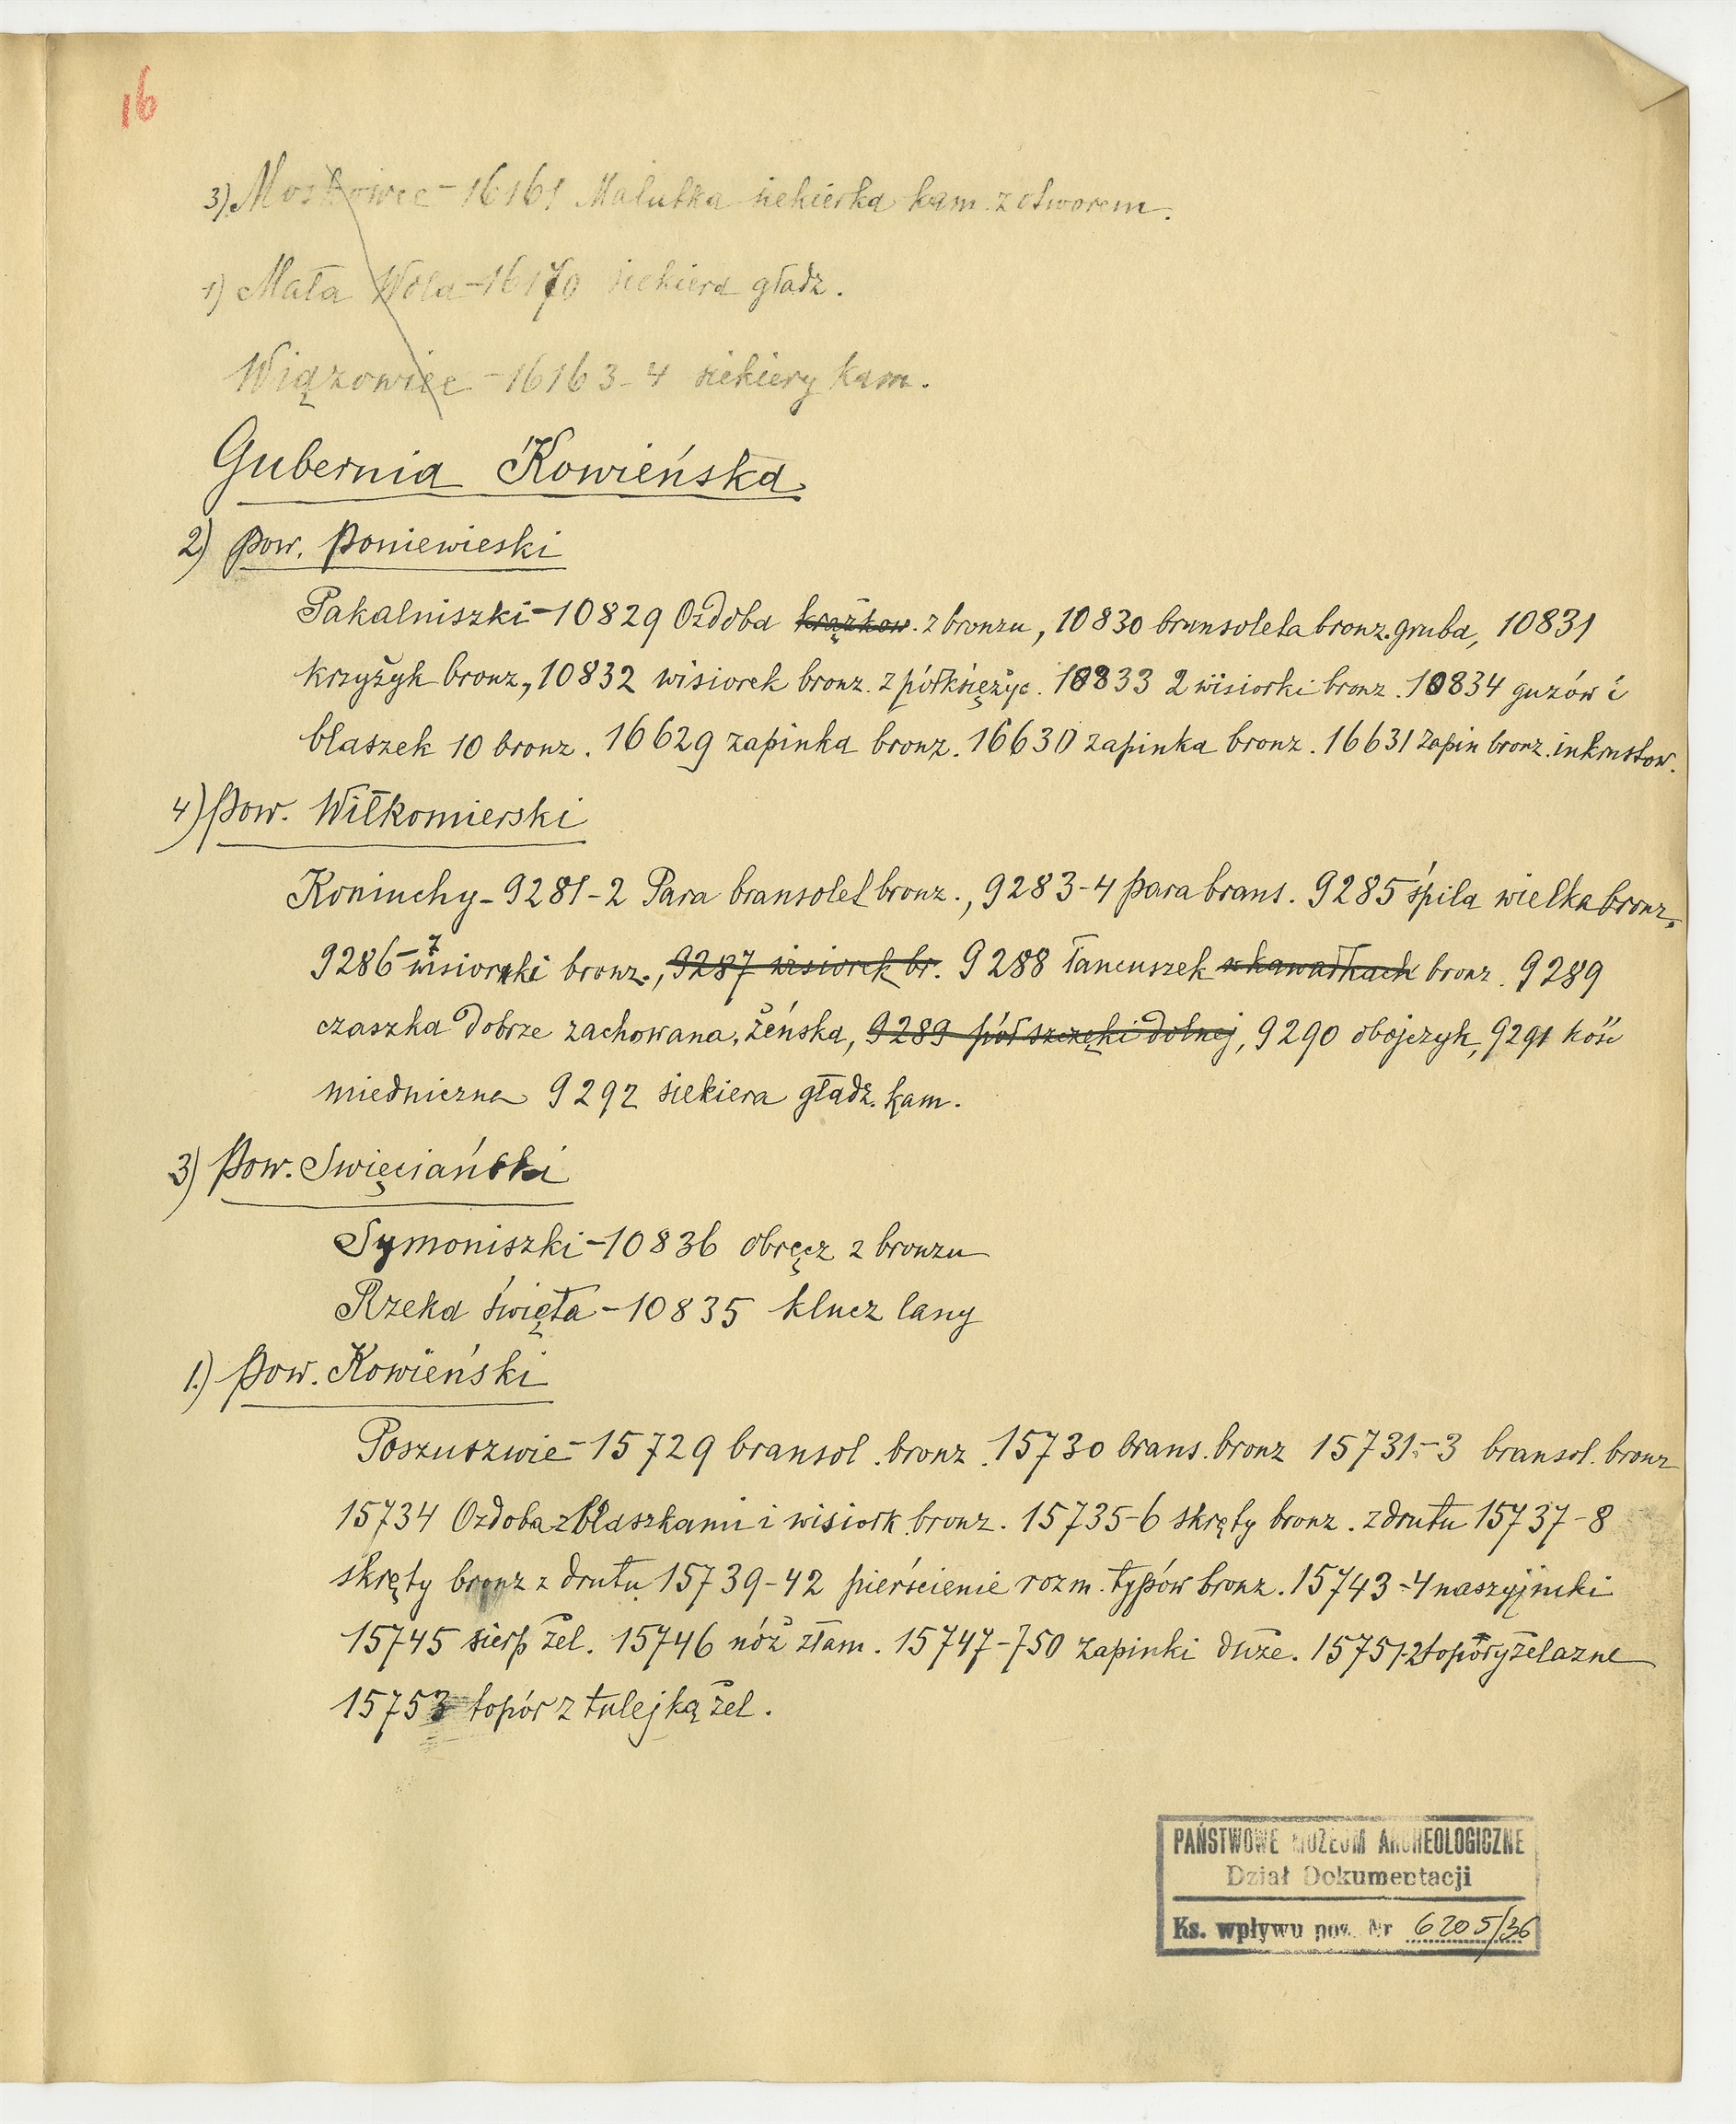 16
3) Moskowec - 16161 Malutka siekierka kam. z otworem.
1) Mała Wola - 16170 siekiera gładz.
Wiązowiec - 16163-4 siekiery kam.
Gubernia Kowieńska
2) Pow. Poniewieski
Pakalniszki - 10829 Ozdoba krążkow. z bronzu, 10830 bransoleta bronz. gruba, 10831
krzyżyk bronz., 10832 wisiorek bronz. z półksiężyc. 10833 2 wisiorki bronz. 10834 guzów i
blaszek 10 bronz. 16629 zapinka bronz. 16630 zapinka bronz. 16631 zapin bronz. inkrustow.
4) Pow. Wiłkomierski
Koniuchy - 9281-2 Para bransolet bronz., 9283-4 para brans. 9285 śpila wielka bronz.
9286-7 wisiorki bronz., 9287 wisiorek br. 9288 łancuszek w kawałkach bronz. 9289
czaszka dobrze zachowana, żeńska, 9289 pół szczęki dolnej, 9290 obojczyk, 9291 kość
miedniczna 9292 siekiera gładz. kam.
3) Pow. Swięciański
Symoniszki - 10836 obręcz z bronzu
Rzeka święta - 10835 klucz lany
1.) Pow. Kowieński
Poszuszwie - 15729 bransol. bronz. 15730 brans. bronz 15731-3 bransol. bronz
15734 Ozdoba z blaszkami i wisiork bronz. 15735-6 skręty bronz. z drutu 15737-8
skręty bronz z drutu 15739-42 pierścienie rozm. typów bronz. 15743-4 naszyjniki
15745 sierp żel. 15746 nóż złam. 15747-750 zapinki duże. 15751-2 topory żelazne
15753 topór z tulejką żel.
PAŃSTWOWE MUZEUM ARCHEOLOGICZNE
Dział Dokumentacji
Ks. wpływu poz. Nr 6205/36